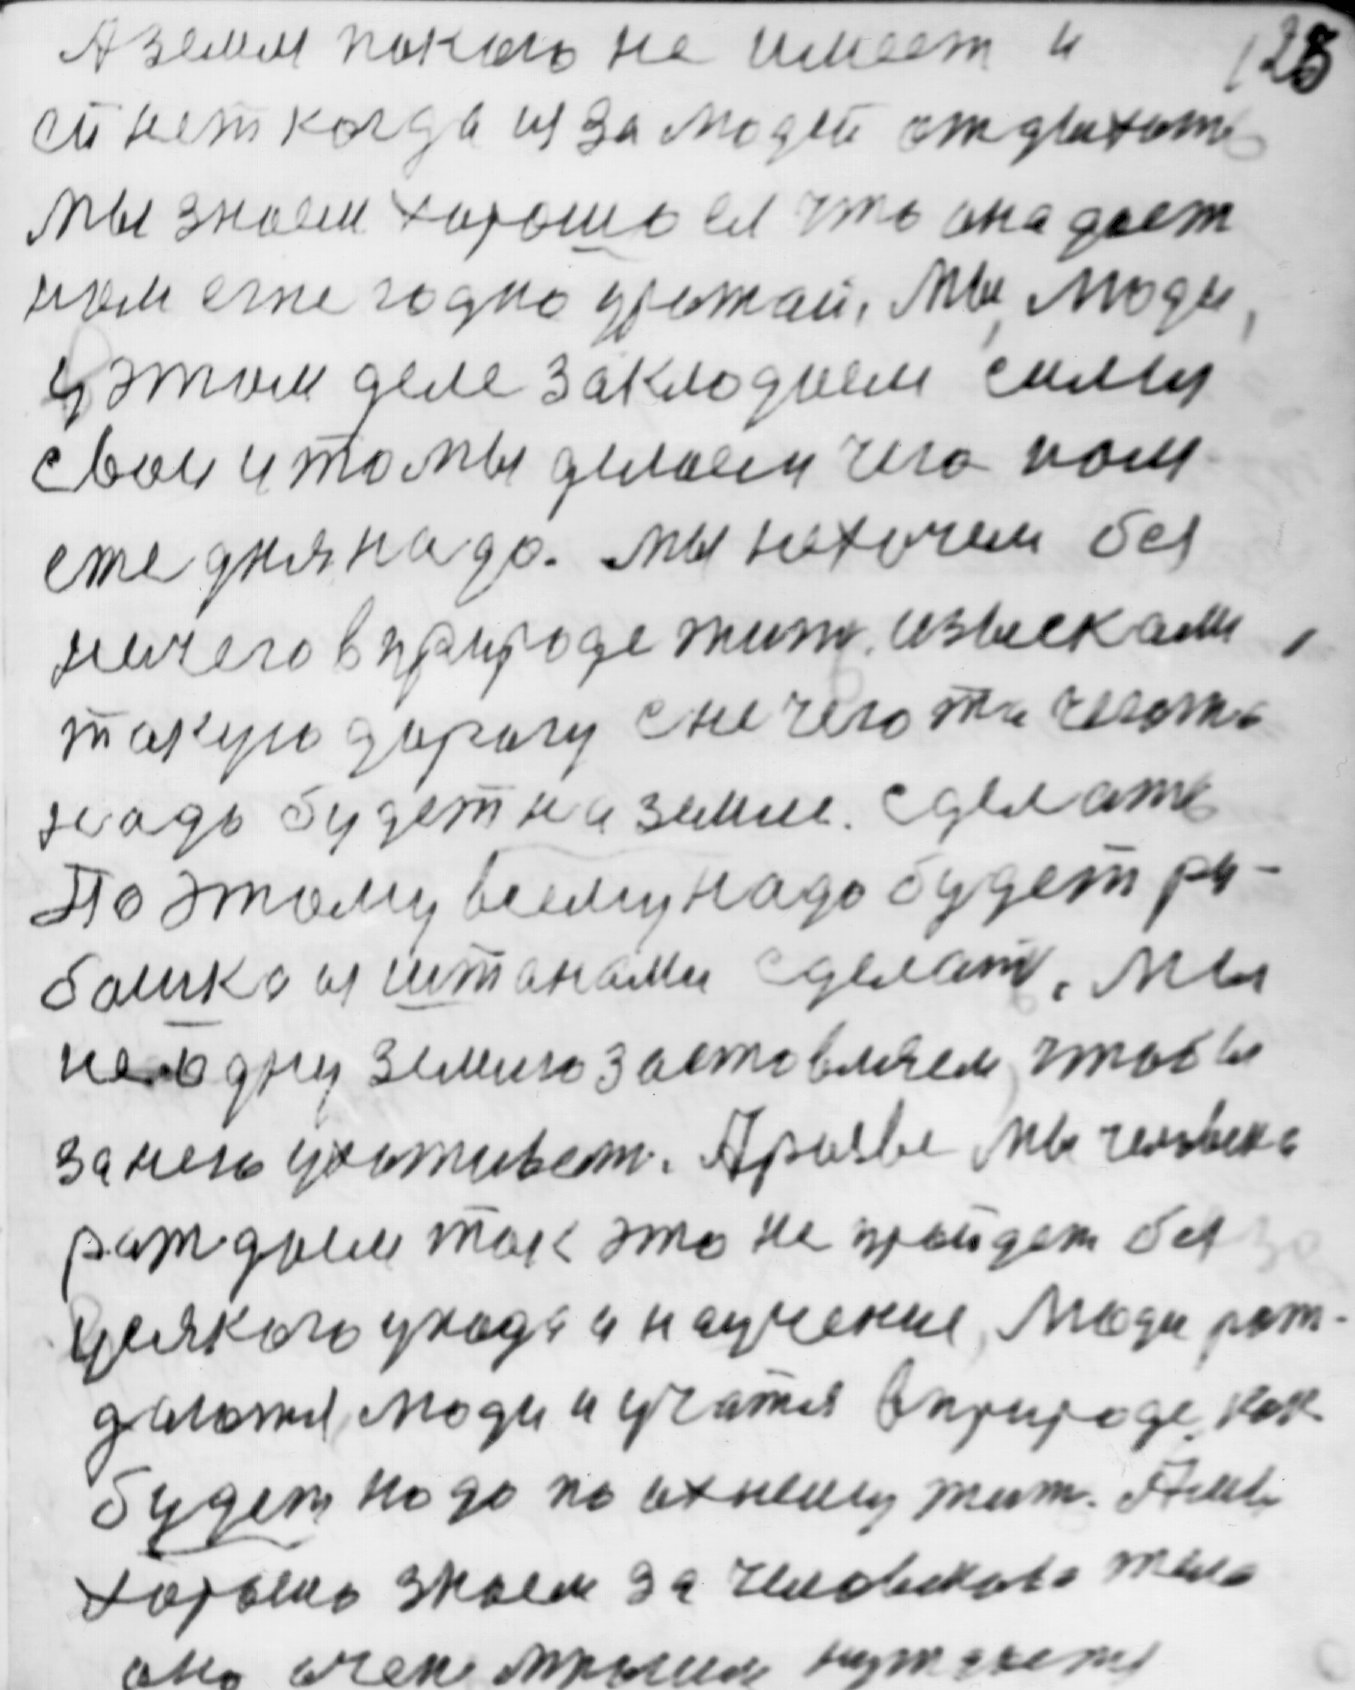 А земля покою не имеет и 128
ей нет когда из за людей отдыхать
мы знаем хорошо ея что она дает
нам еже годно урожай. Мы, люди,
у этом деле закладаем силы
свои и то мы делаем чего нам
еже дня надо. мы не хочем без
ничего в природе жить. изыскали
такую дорогу с нечего та чегото
надо будет на земле. сделать
По этому всему надо будет ру-
башка и штанами сделать. Мы
не одну землю заставляем, чтобы
за нею ухаживат. А разве мы человека
раждаем так это не пройдет без
усякого ухода и научение, Люди рож-
даются, люди и учатся в природе, как
будет надо по ихнему жит. А мы
хорошо знаем за человекова тела
оно очень многим нуждается